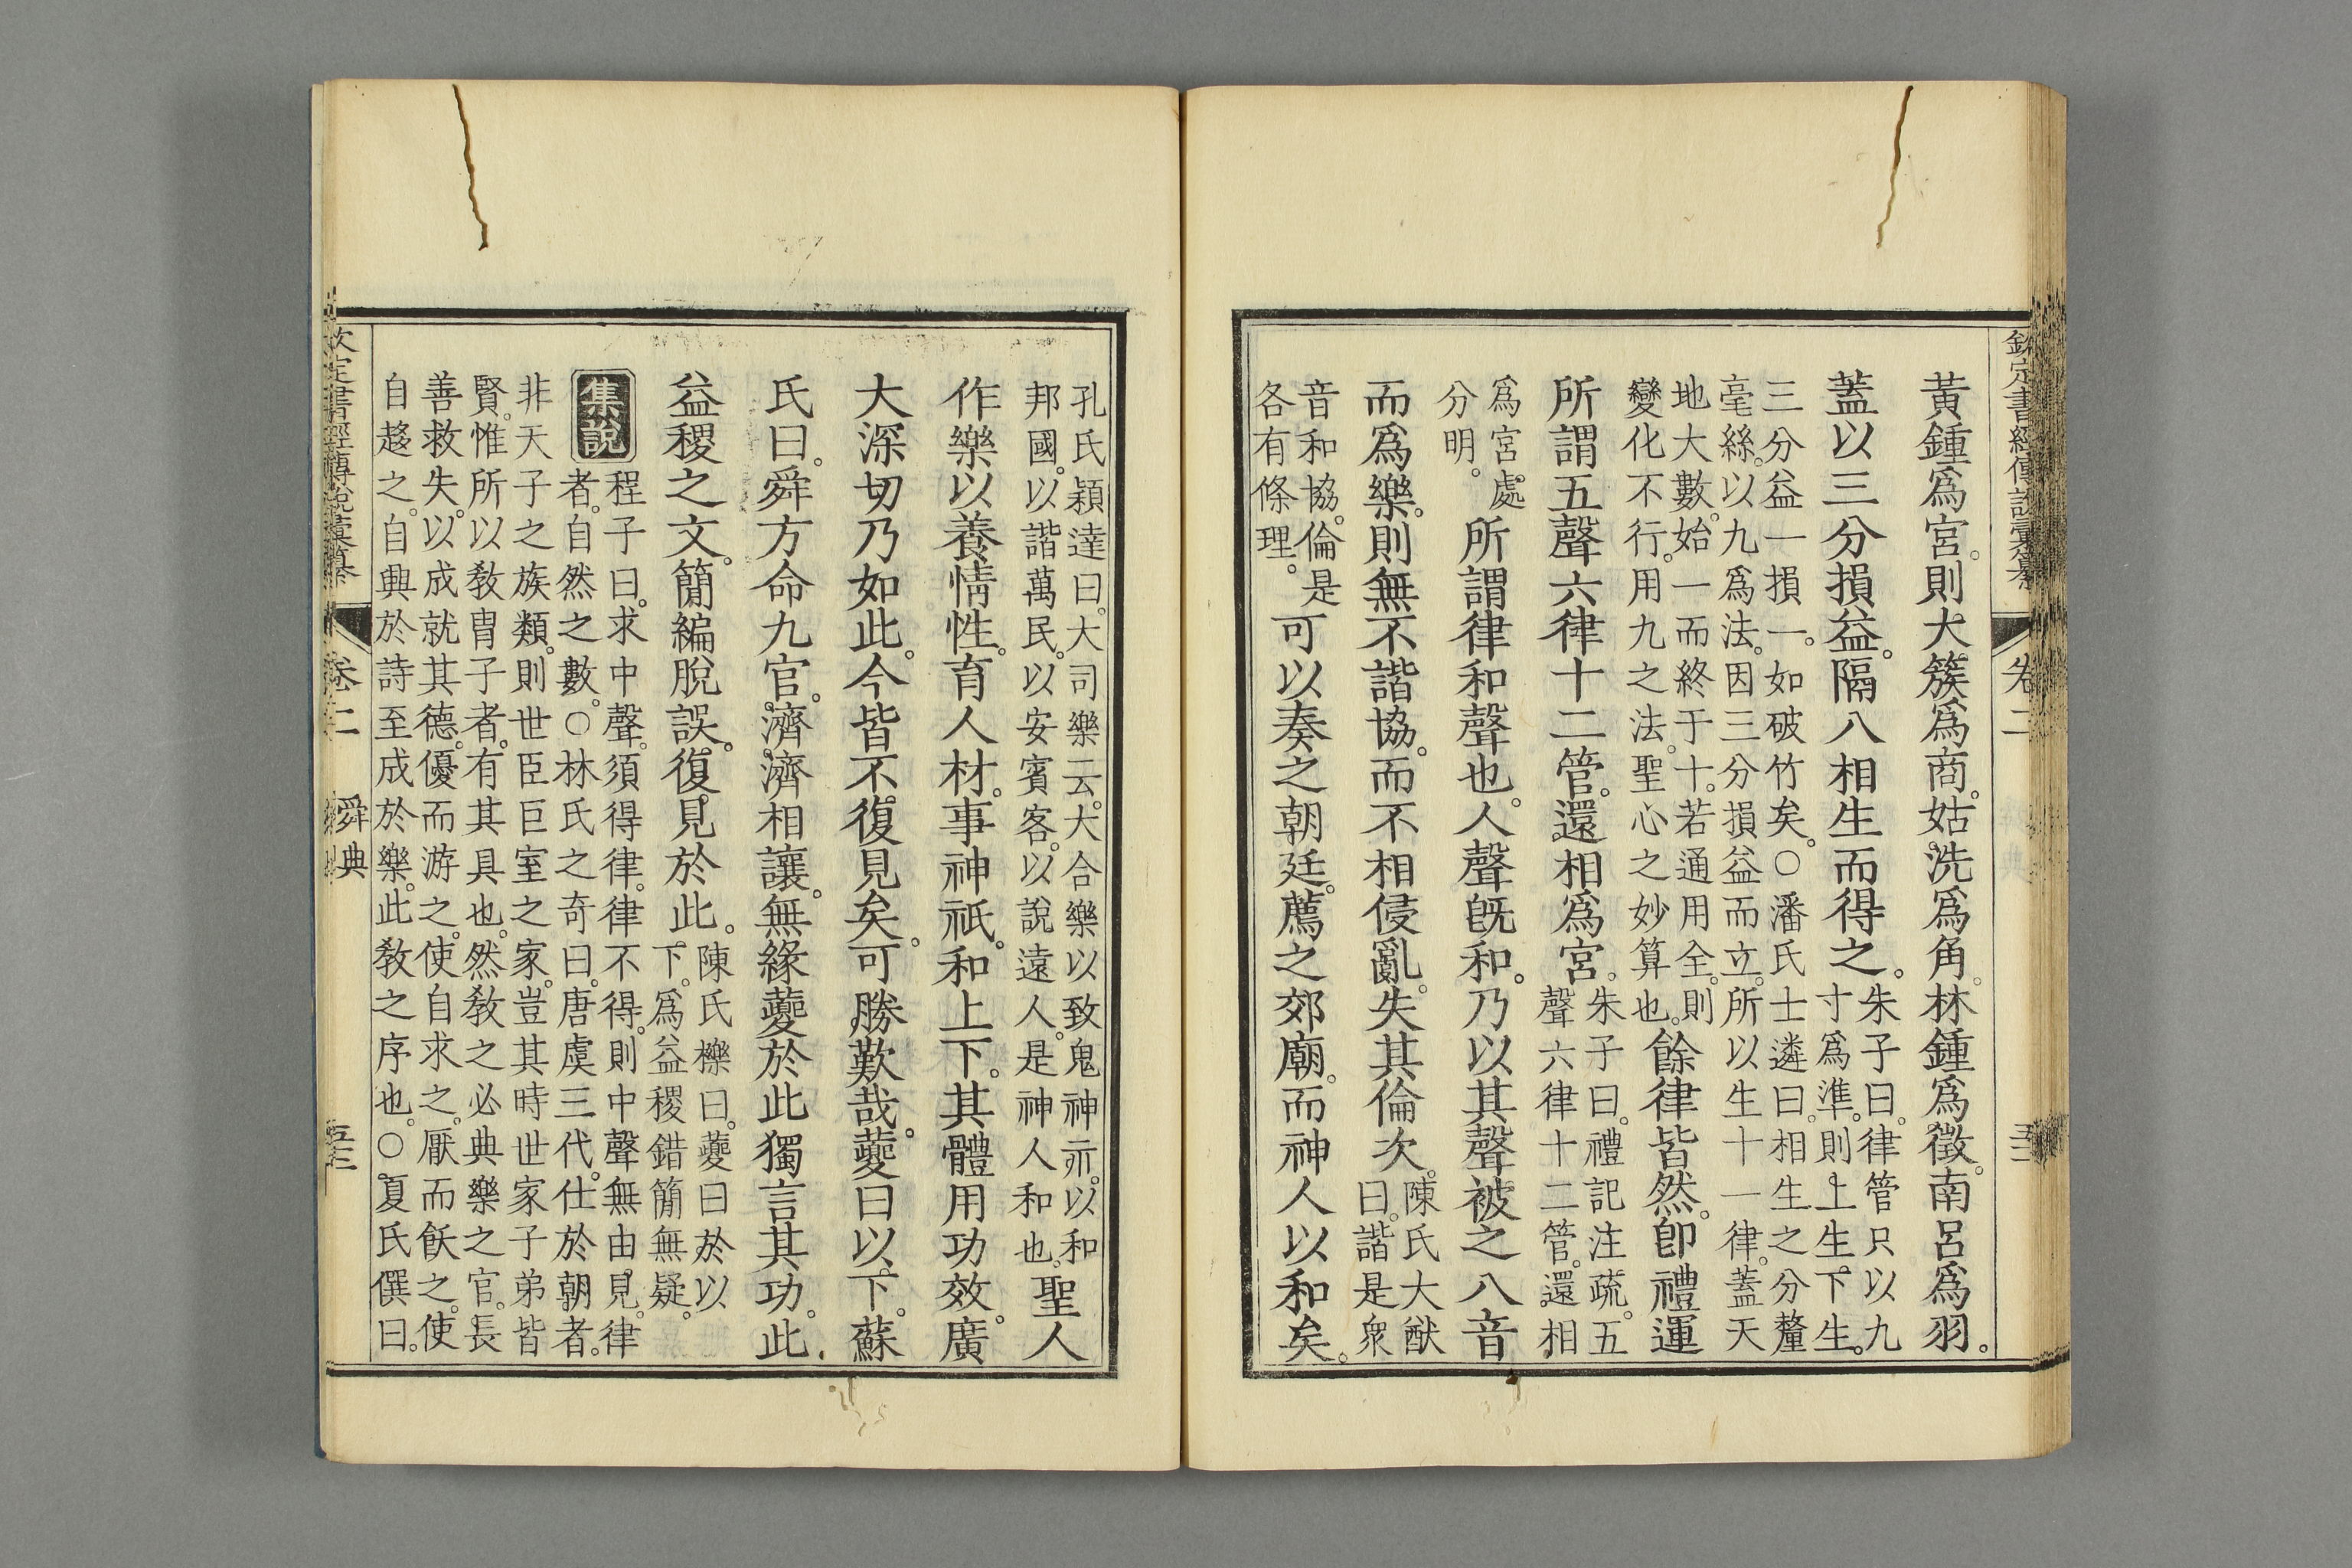 欽定書經傳說彙纂 卷二
黃鍾爲宮。則大簇爲商。姑洗爲角。林鍾爲徵。南呂爲羽。
蓋以三分損益。隔八相生而得之。
朱子曰。律管只以九
寸爲準。則上生。下生。
三分益一損一。如破竹矣。○潘氏士遴曰。相生之分釐
毫絲。以九爲法。因三分損益而立。所以生十一律。蓋天
地大數。始一而終于十。若通用全。則
變化不行。用九之法。聖心之妙算也。
餘律皆然。卽禮運
所謂五聲六律十二管。還相爲宮。
朱子曰。禮記注疏。五
聲六律十二管。還相
爲宮。處
分明。
所謂律和聲也。人聲旣和。乃以其聲被之八音
而爲樂。則無不諧協。而不相侵亂。失其倫次。
陳氏大猷
曰。諧是衆
音和協。倫是
各有條理。
可以奏之朝廷。薦之郊廟。而神人以和矣。
孔氏穎達曰。大司樂云。大合樂以致鬼神示。以和
邦國。以諧萬民。以安賓客。以說遠人。是神人和也。
聖人
作樂以養情性。育人材。事神祇。和上下。其體用功效。廣
大深切乃如此。今皆不復見矣。可勝歎哉。夔曰以下。蘇
氏曰。舜方命九官。濟濟相讓。無緣夔於此獨言其功。此
益稷之文。簡編脫誤。復見於此。
陳氏櫟曰。夔曰於以
下。爲益稷錯簡無疑。
集說
程子曰。求中聲。須得律。律不得。則中聲無由見。律
者。自然之數。○林氏之奇曰。唐虞三代。仕於朝者。
非天子之族類。則世臣巨室之家。豈其時世家子弟皆
賢。惟所以敎冑子者。有其具也。然敎之必典樂之官。長
善救失。以成就其德。優而游之。使自求之。厭而飫之。使
自趨之。自興於詩至成於樂。此敎之序也。○夏氏僎曰。
欽定書經傳說彙纂 卷二 舜典